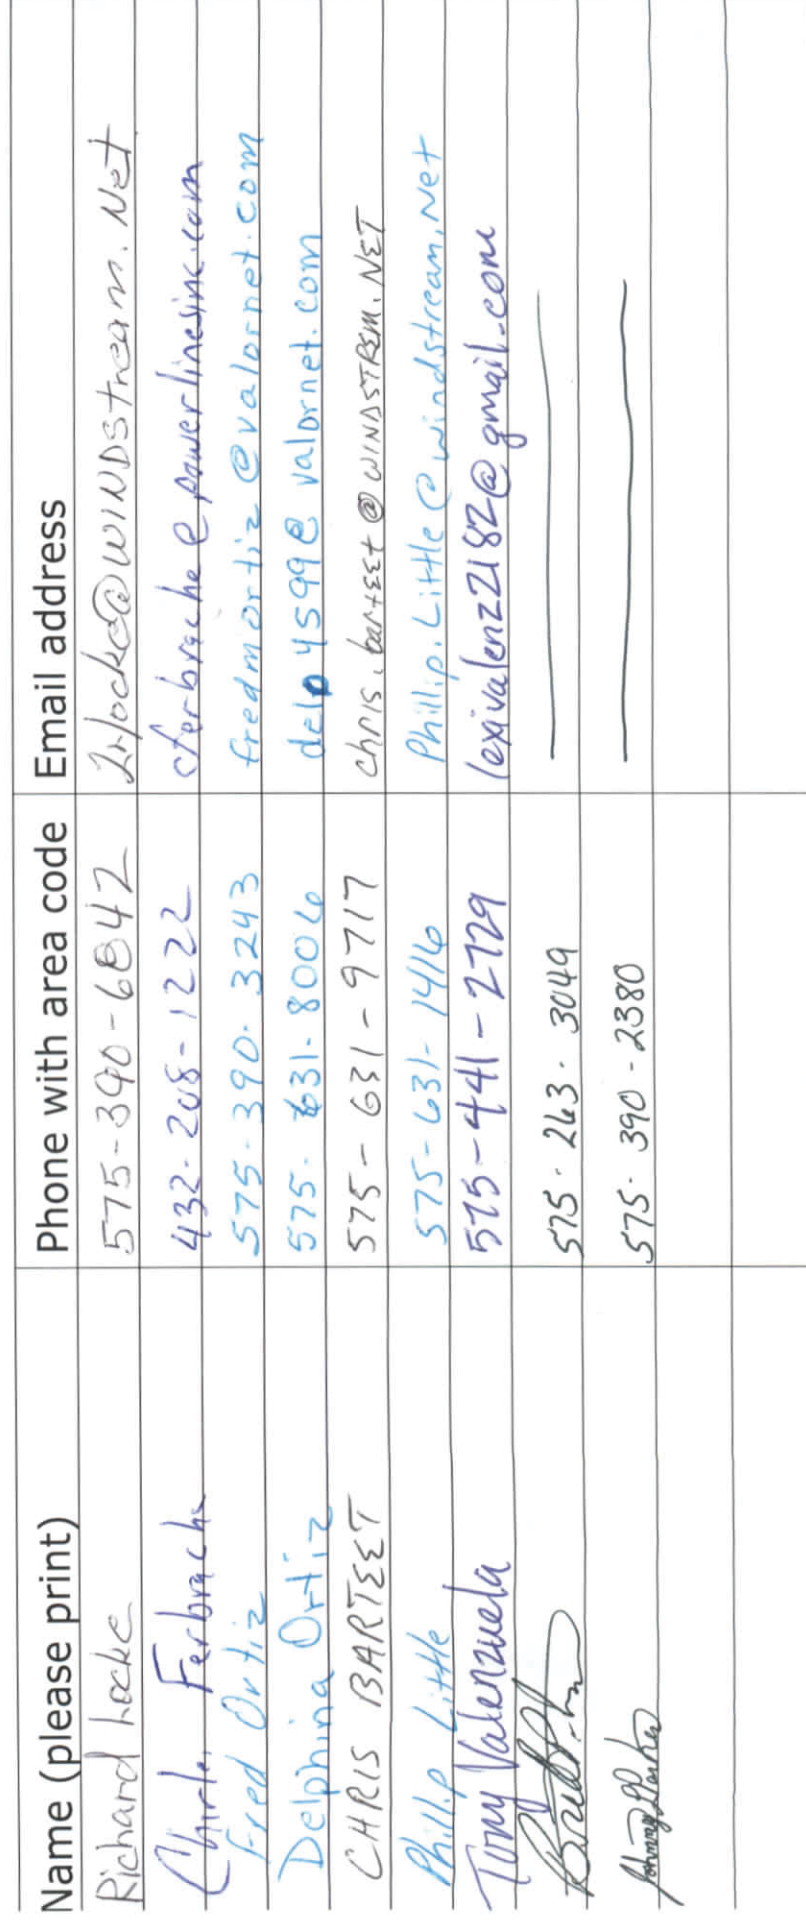 Name (please print) Phone with area code Email address
Richard Locke 575-390-6842 @WINDStream.Net
Charles Ferbrache 432-208-1222 cferbrache@powerlinesinc.com
Fred Ortiz 575-390-3243 fredmortiz@valornet.com
Delphina Ortiz 575-631-8006 delo4599@valornet.com
CHRIS BARTEET 575-631-9717 chris.bartEEt@WINDSTREM.NET
Phillip Little 575-631-1416 Phillip.Little@windstream.Net
Tony Valenzuela 575-441-2729 lexivalenz2182@gmail.com
575-263-3049
Johnny 575-390-2380